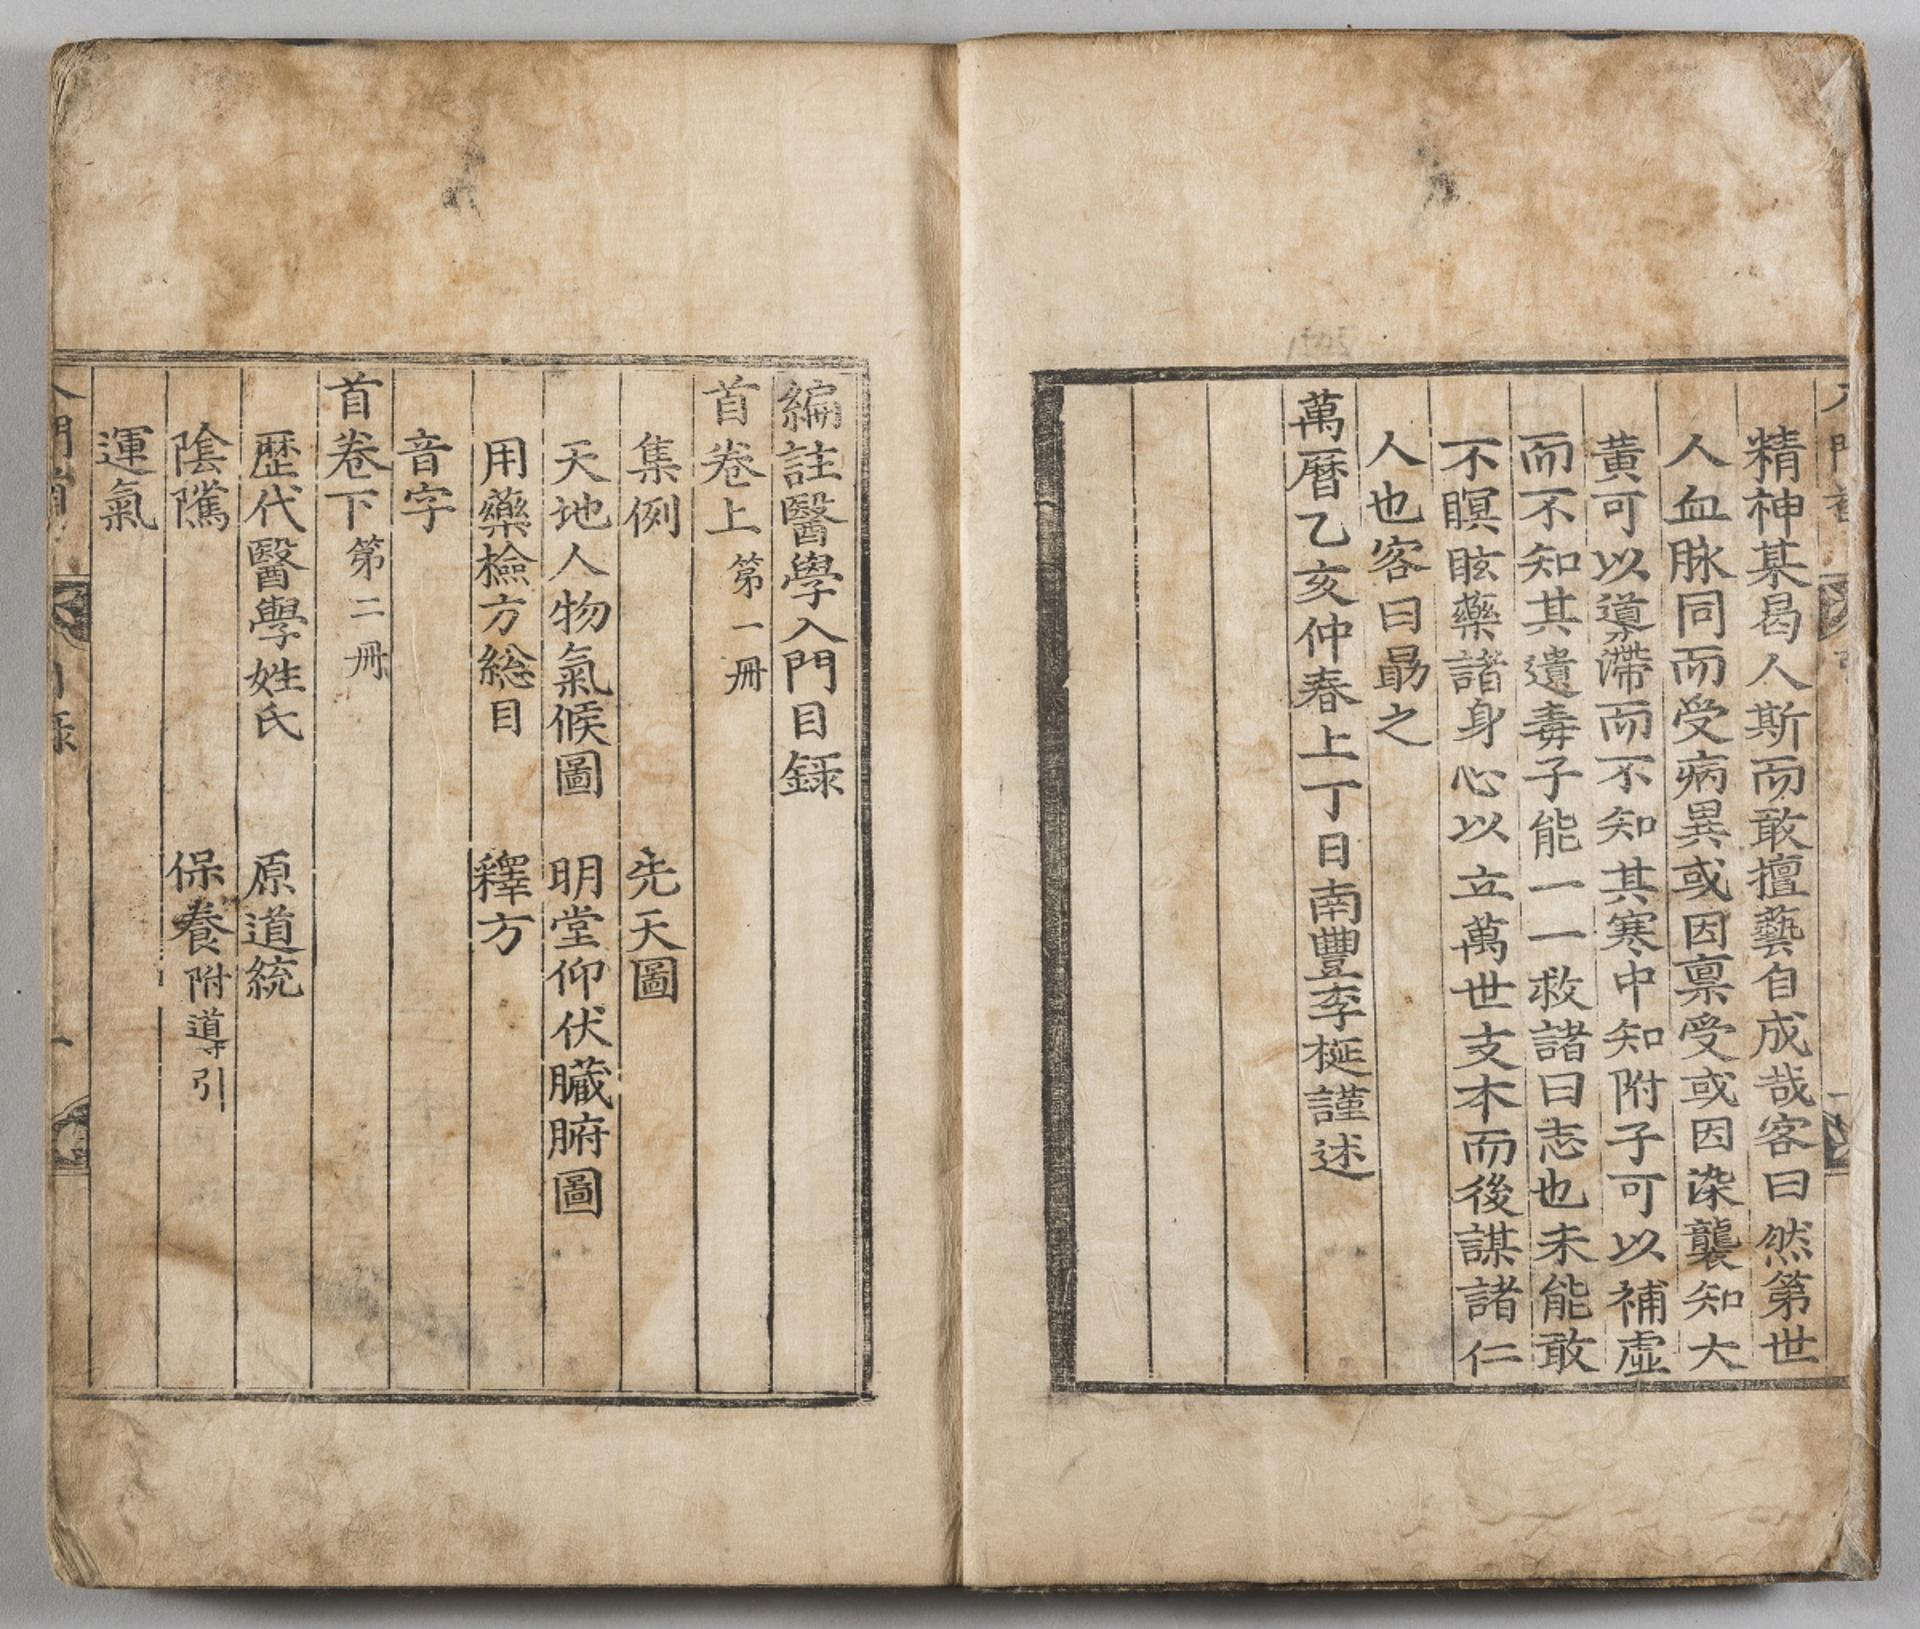 精神某曷人斯而敢擅藝自成哉客曰然第世
人血脉同而受病異或因禀受或因染襲知大
黃可以導滯而不知其寒中知附子可以補虛
而不知其遺毒子能一一救諸曰志也未能敢
不瞑眩藥諸身心以立萬世支本而後謀諸仁
人也客曰勗之
萬曆乙亥仲春上丁日南豐李梴謹述
編註醫學入門目錄
首卷上 第一冊
集例 先天圖
天地人物氣候圖 明堂仰伏臟腑圖
用藥檢方総目 釋方
音字
首卷下 第二冊
歷代醫學姓氏 原道統
陰隲 保養 附導引
運氣